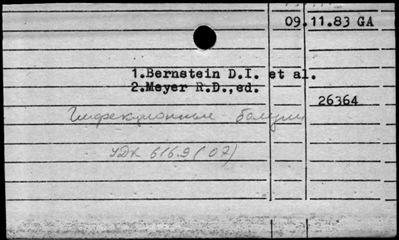 09.11.83 GA
1.Bernstein D.I. et al.
2.Meyer R.D.,ed.
26364
Инфекционные болезни
УДК 616.9 (07)